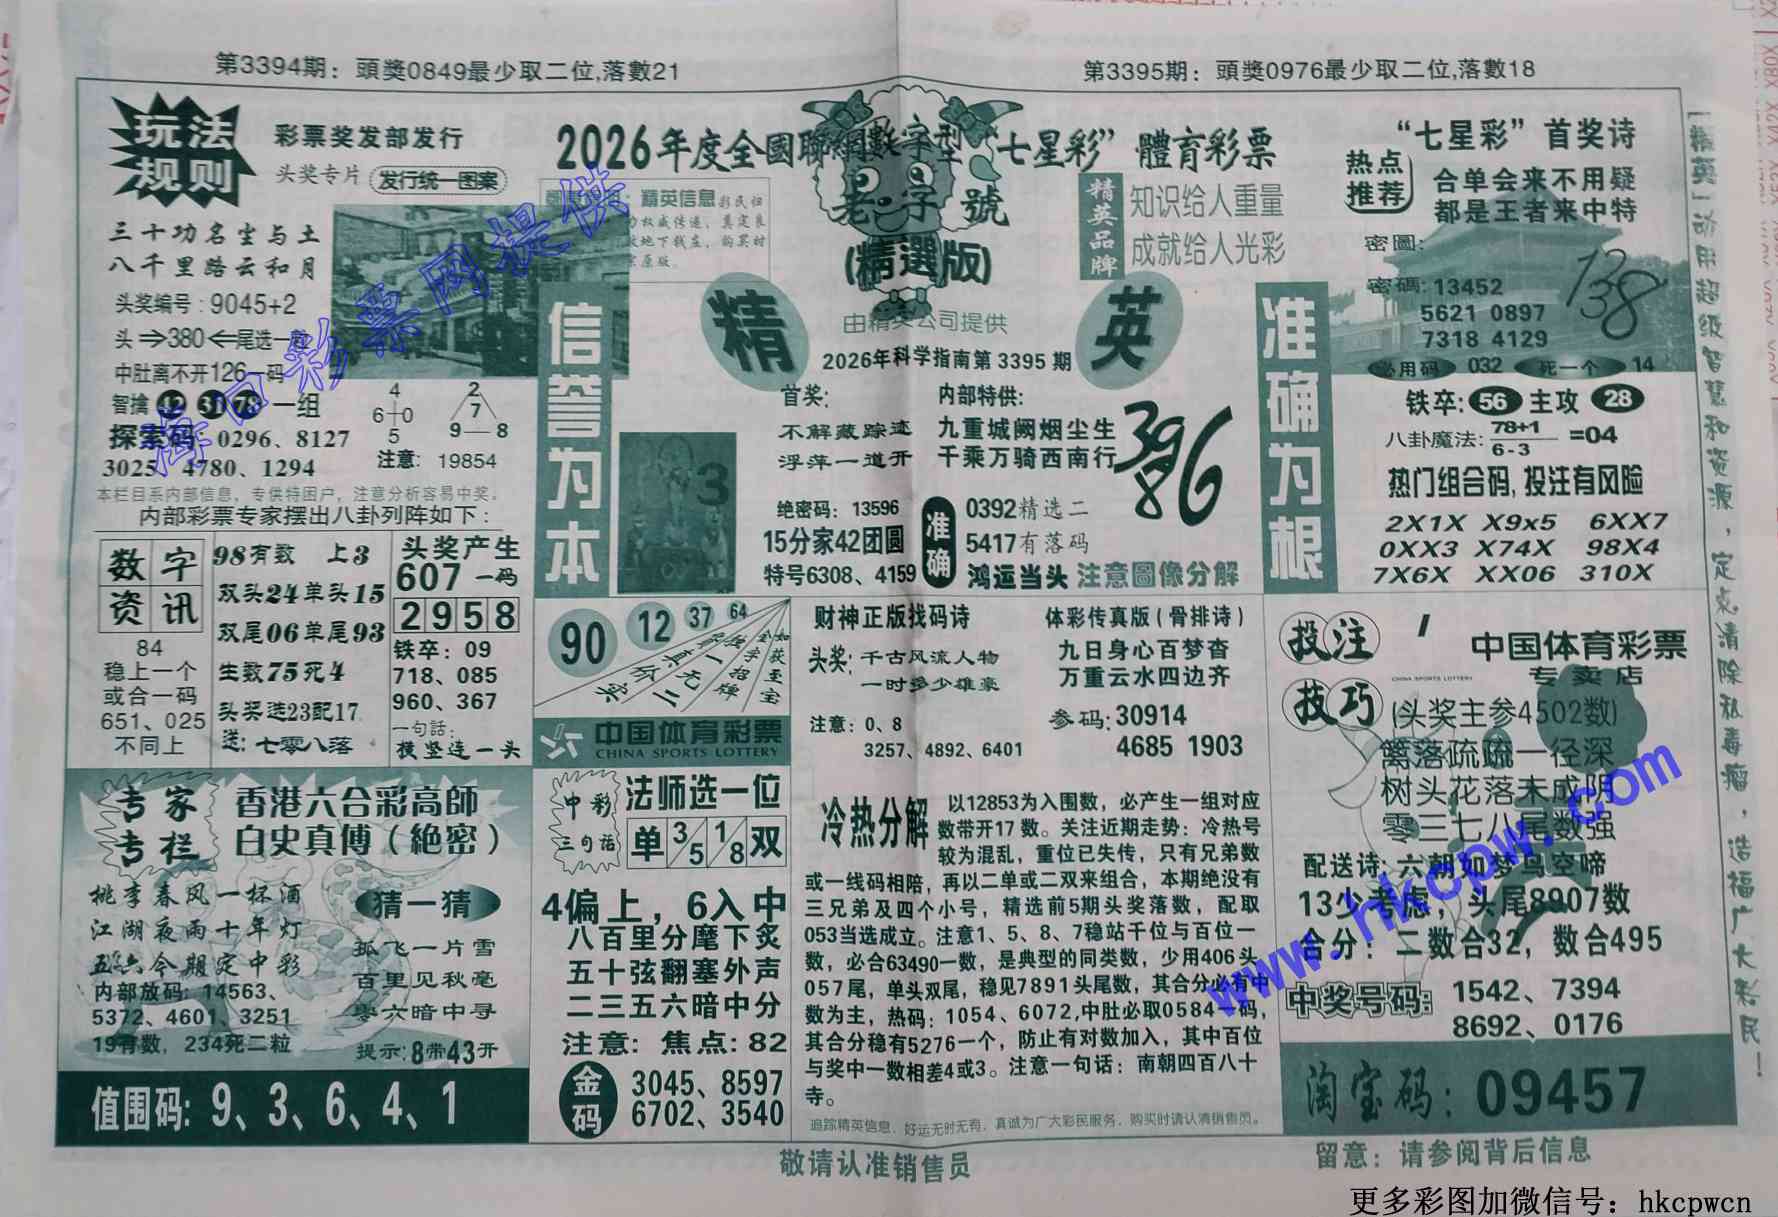 第3394期：頭獎0849最少取二位,落數21
第3395期：頭獎0976最少取二位,落數18
玩法
规则
彩票奖发部发行
头奖专片 发行统一图案
三十功名尘与土
八千里路云和月
头奖编号：9045+2
头⇒380⇐尾选一粒
中肚离不开126一码
智擒 42 31 78 一组
探索码：0296、8127
3025 4780、1294
4
6 0
5
2
7
9 8
注意：19854
本栏目系内部信息，专供特困户，注意分析容易中奖。
内部彩票专家摆出八卦列阵如下：
2026年度全國聯網數字型“七星彩”體育彩票
老字號
(精選版)
精英信息
精英品牌
知识给人重量
成就给人光彩
信誉为本
精
英
由精英公司提供
2026年科学指南第3395期
首奖：
不解藏踪迹
浮萍一道开
内部特供：
九重城阙烟尘生
千乘万骑西南行
396
8
绝密码：13596
15分家42团圆
特号6308、4159
准确
0392精选二
5417有落码
鸿运当头 注意圖像分解
准确为根
热点
推荐
“七星彩”首奖诗
合单会来不用疑
都是王者来中特
密圖：
密碼：13452
5621 0897
7318 4129
必用码 032 死一个 14
铁卒：56 主攻 28
八卦魔法：78+1
6-3
=04
热门组合码，投注有风险
2X1X X9x5 6XX7
0XX3 X74X 98X4
7X6X XX06 310X
数字
资讯
84
稳上一个
或合一码
651、025
不同上
98有数 上3
双头24单头15
双尾06单尾93
生数75死4
头奖选23配17
送：七零八落
头奖产生
607一码
2958
铁卒：09
718、085
960、367
一句話：
横竖连一头
90
12
37
64
中国体育彩票
CHINA SPORTS LOTTERY
财神正版找码诗
头奖：千古风流人物
一时多少雄豪
注意：0、8
3257、4892、6401
体彩传真版（骨排诗）
九日身心百梦杳
万重云水四边齐
参码：30914
4685 1903
投注
技巧
中国体育彩票
专卖店
CHINA SPORTS LOTTERY
(头奖主参4502数)
篱落疏疏一径深
树头花落未成阴
零三七八尾数强
配送诗：六朝如梦鸟空啼
13少考虑，头尾8907数
合分：二数合32，数合495
中奖号码：1542、7394
8692、0176
淘宝码：09457
专家
专栏
香港六合彩高師
白史真傅（絶密）
桃李春风一杯酒
江湖夜雨十年灯
五六今期定中彩
内部放码：14563、
5372、4601、3251
19有数，234死二粒
猜一猜
孤飞一片雪
百里见秋毫
零六暗中寻
提示：8带43开
值围码：9、3、6、4、1
中彩
三句话
法师选一位
单 3/5 1/8 双
4偏上，6入中
八百里分麾下炙
五十弦翻塞外声
二三五六暗中分
注意：焦点：82
金码
3045、8597
6702、3540
冷热分解
以12853为入围数，必产生一组对应
数带开17数。关注近期走势：冷热号
较为混乱，重位已失传，只有兄弟数
或一线码相陪，再以二单或二双来组合，本期绝没有
三兄弟及四个小号，精选前5期头奖落数，配取
053当选成立。注意1、5、8、7稳站千位与百位一
数，必合63490一数，是典型的同类数，少用406头
057尾，单头双尾，稳见7891头尾数，其合分必有中
数为主，热码：1054、6072,中肚必取0584一码，
其合分稳有5276一个，防止有对数加入，其中百位
与奖中一数相差4或3。注意一句话：南朝四百八十
寺。
追踪精英信息，好运无时无有，真诚为广大彩民服务，购买时请认清销售员。
敬请认准销售员
留意：请参阅背后信息
“精英”动用超级智慧和资源，定点清除私毒瘤，造福广大彩民！
海口彩票网提供
www.hkcpw.com
更多彩图加微信号：hkcpwcn